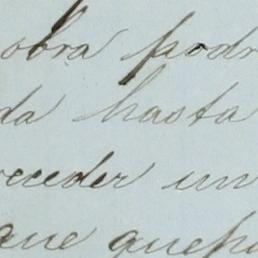 obra podr
da hasta
ceder un
que quepa